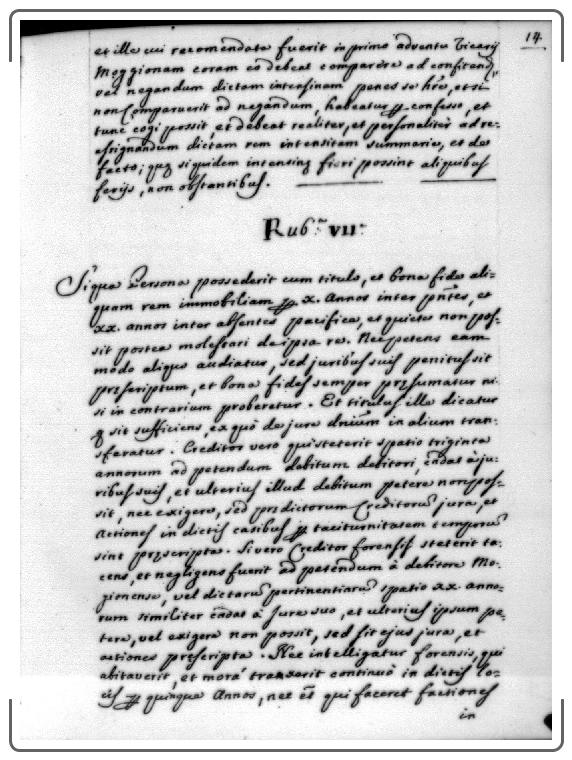 14
et ille cui recomendata fuerit in primo adventu Vicarij
Moggionam coram eo debeat comparere ad confitend,
vel negandum dictam intensinam penes se hre, et si
non Comparuerit ad negandum, habeatur p confesso, et
tunc cogi possit et debeat realiter, et personaliter ad re-
ssignandum dictam rem intensitam summarie, et de
facto; quę siquidem intensinę fieri possint aliquibus
ferijs, non obstantibus.
Rub.ca VII.a
Siqua Persona possederit cum titulo, et bona fide ali-
quam rem immobiliam p x. Annos inter pntes, et
xx. annos inter absentes pacifice, et quiete non pos-
sit postea molestari de ipsa re. Nec petens eam
modo aliquo audiatur, sed juribus suis penitus sit
prescriptum, et bona fides semper pręsumatur ni-
si in contrarium proberetur. Et titulus ille dicatur
q sit sufficiens, ex quò de jure dnium in alium tran-
sferatur. Creditor vero qui steterit spatio triginta
annorum ad petendum debitum debitori, cadat à ju-
ribus suis, et ulterius illud debitum petere non pos-
sit, nec exigere, sed prędictorum Creditorū jura, et
actiones in dictis casibus p taciturnitatem temporū
sint pręscripta. Si vero Creditor forensis steterit ta-
cens, et negligens fuerit ad petendum à debitore Mo-
gionense, vel dictarū pertinentiarū spatio xx. anno-
rum similiter cadat à Jure suo, et ulterius ipsum pe-
tere, vel exigere non possit, sed sit ejus jura, et
actiones prescripta. Nec intelligatur forensis, qui
abitaverit, et morā traxerit continuò in dictis lo-
cis p quinque Annos, nec et qui faceret factiones
in